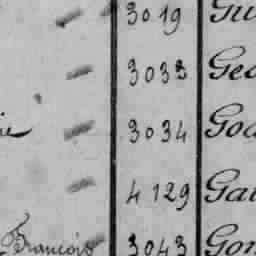 3019 Gu
3033 Geo
ie 3034 God
4129 Gau
François 3043 Gon